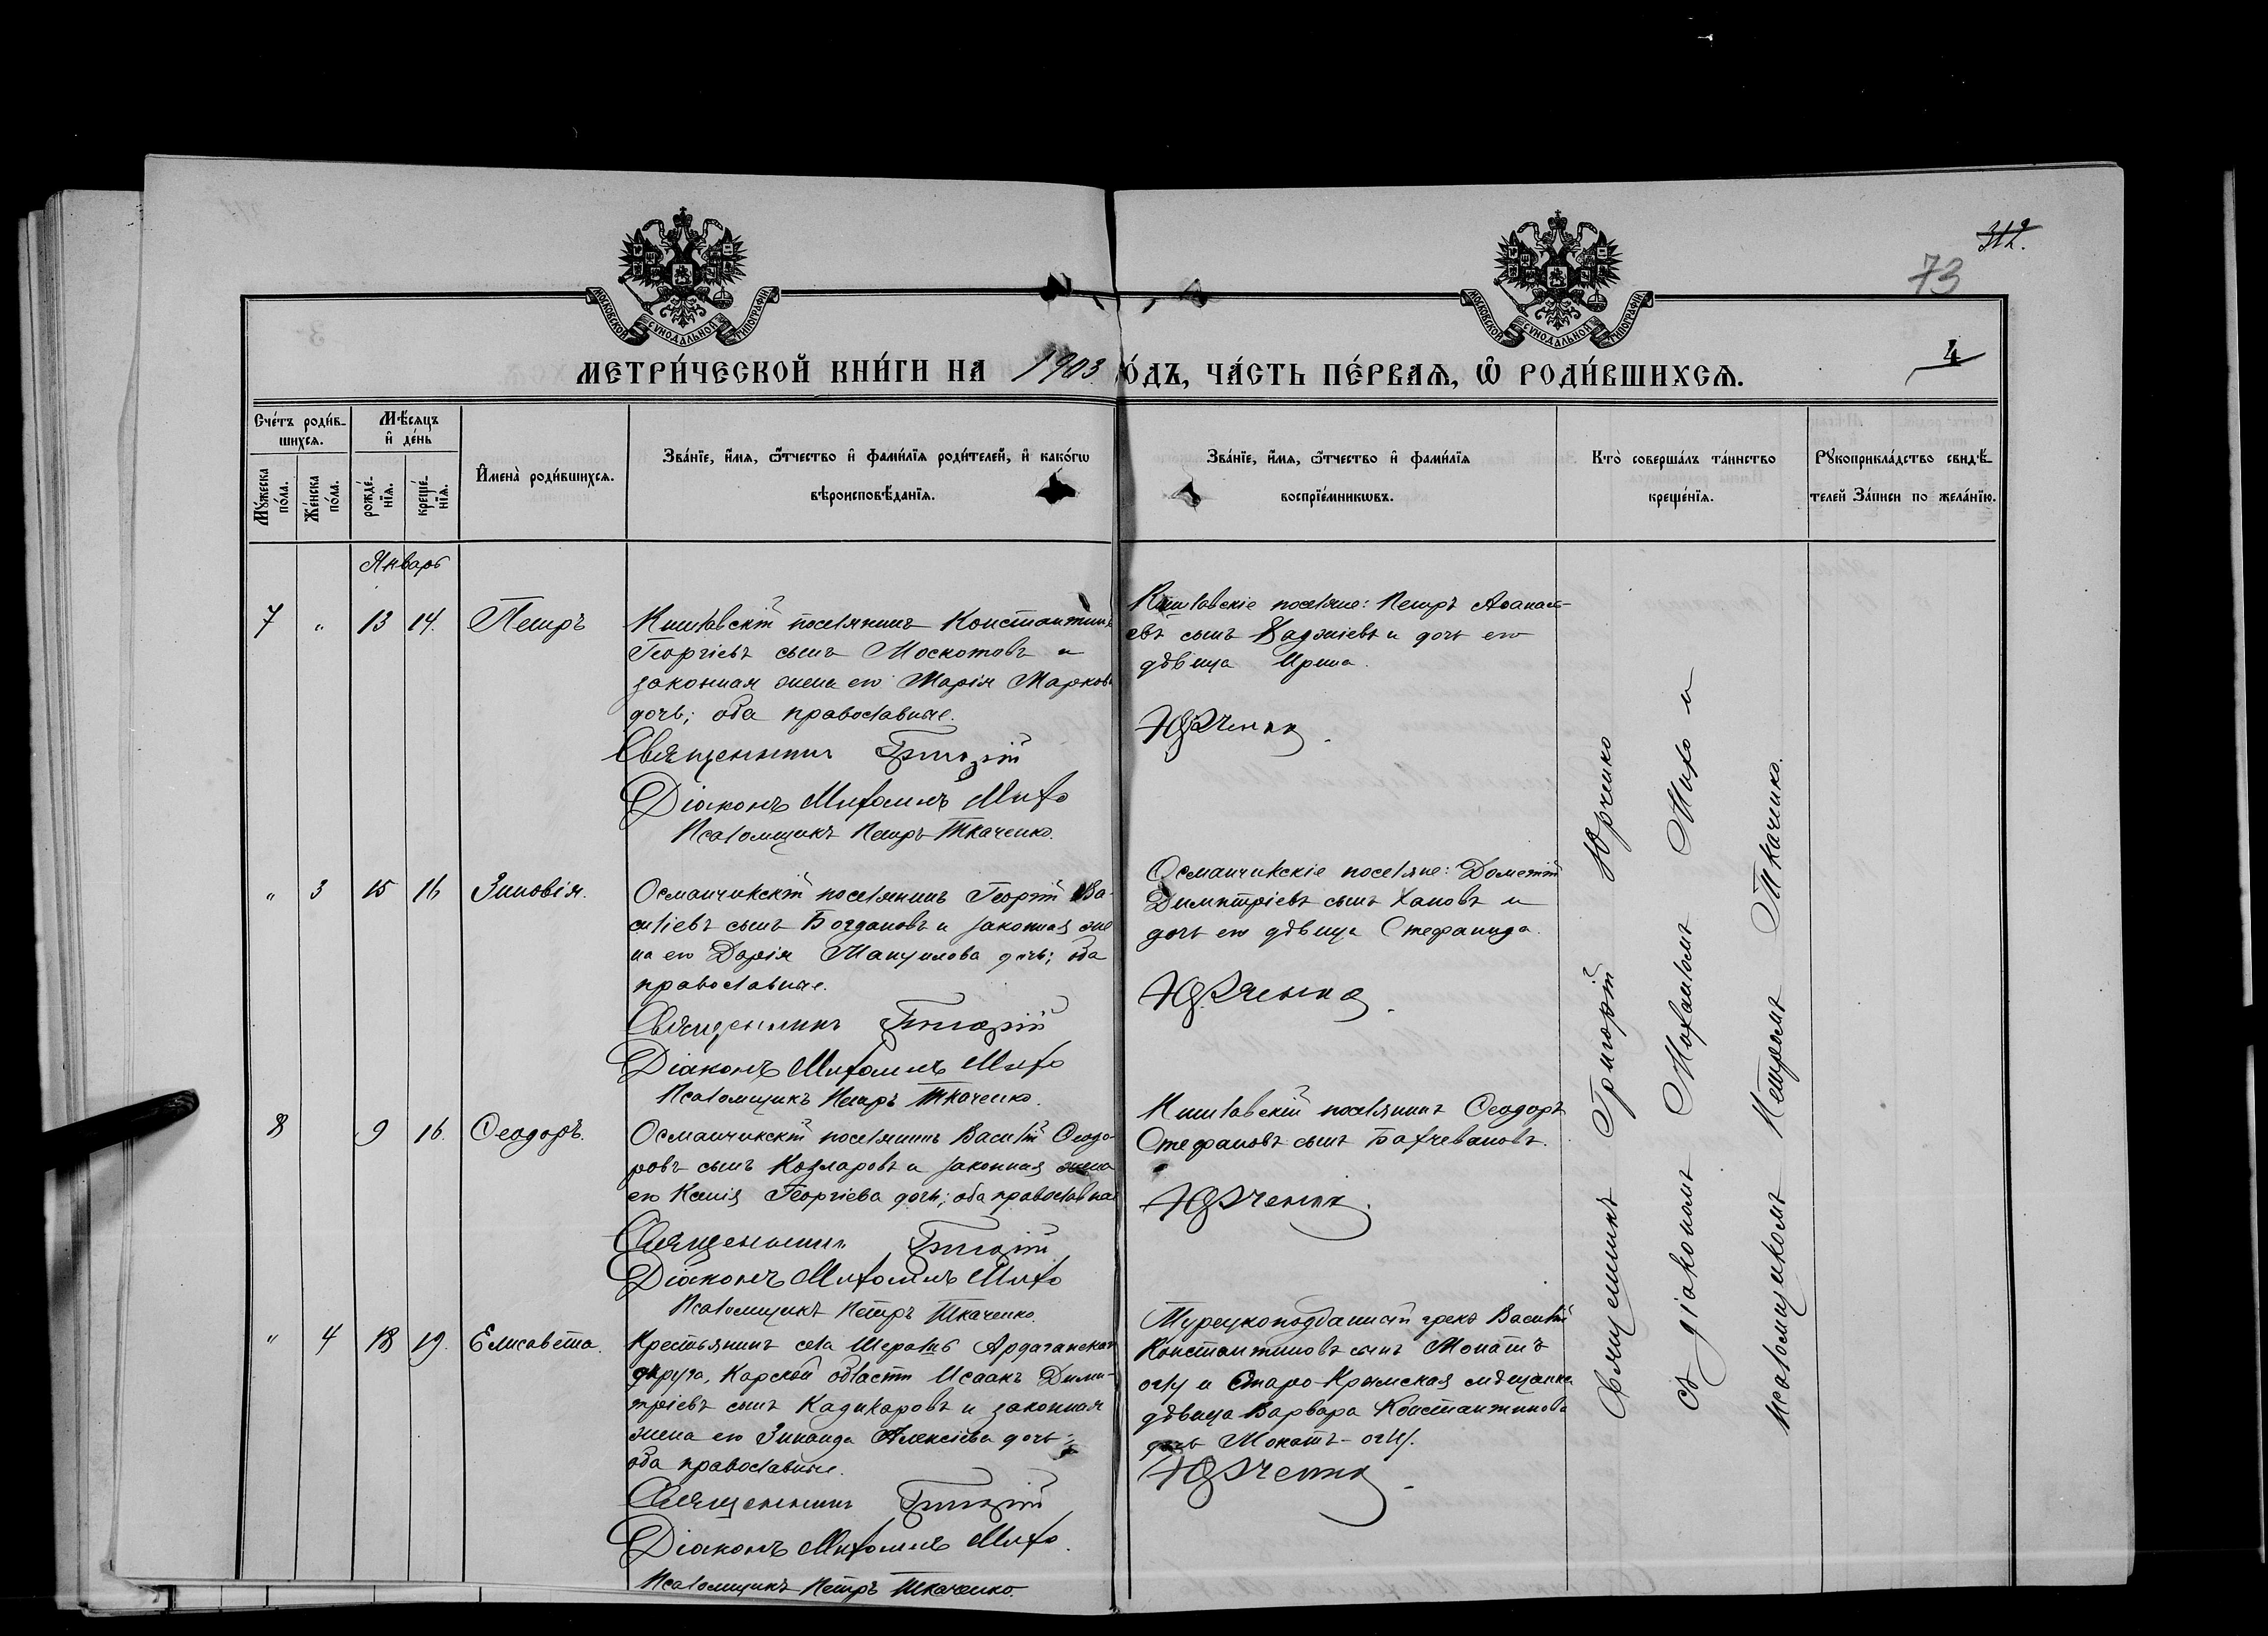 312.
73
4
МОСКОВСКОЙ СѴНОДАЛЬНОЙ ТИПОГРАФІИ
МОСКОВСКОЙ СѴНОДАЛЬНОЙ ТИПОГРАФІИ
МЕТРИ́ЧЕСКОЙ КНИ́ГИ НА 1903 ГО́ДЪ, ЧА́СТЬ ПЕ́РВАѦ, Ѡ РОДИ́ВШИХСѦ.
Сче́тъ роди́в-
шихсѧ.
Мѣ́сяцъ
и҆ де́нь
Мꙋ́жеска по́ла.
Же́нска по́ла.
рожде́-
нїѧ.
креще́-
нїѧ.
И҆мена̀ роди́вшихсѧ.
Зва́нїе, и҆́мѧ, ѻ҆́тчество и҆ фами́лїѧ роди́телей, и҆ како́гѡ
вѣроисповѣ́данїѧ.
Зва́нїе, и҆́мѧ, ѻ҆́тчество и҆ фами́лїѧ
воспрїе́мникѡвъ.
Кто̀ соверша́лъ та́инство
креще́нїѧ.
Рꙋкоприкла́дство свидѣ́-
телей За́писи по жела́нїю.
Январь
7 " 13 14. Петръ
Константин
Георгіевъ сынъ Москотовъ и
законная жена его Марія Марков
дочь; оба православные.
Священникъ Григорій
Діаконъ Михаилъ Михо
Псаломщикъ Петръ Ткаченко.
поселяне: Петръ Аѳанась-
евъ сынъ Хаджіевъ и дочь его
дѣвица Ирина.
Юрченко
" 3 15 16 Зиновія.
Османчикскій поселянинъ Георгій Ва-
силіевъ сынъ Богдановъ и законная же
на его Дарія Мануилова дочь; оба
православные.
Священникъ Григорій
Діаконъ Михаилъ Михо
Псаломщикъ Петръ Ткаченко.
Османчикскіе поселяне: Дометій
Димитріевъ сынъ Хановъ и
дочь его дѣвица Стефанида.
Юрченко
8 9 16. Ѳеодоръ.
Османчикскій поселянинъ Василій Ѳеодо-
ровъ сынъ Козларовъ и законная жена
его Ксенія Георгіева дочь; оба православные
Священникъ Григорій
Діаконъ Михаилъ Михо
Псаломщикъ Петръ Ткаченко.
поселянинъ Ѳеодоръ
Стефановъ сынъ Бахчевановъ.
Юрченко
" 4 18 19. Елисавета.
Крестьянинъ села Ардаганскаго
округа, Карской области Исаакъ Дими-
тріевъ сынъ Кадикаровъ и законная
жена его Зинаида Алексіева дочь;
оба православные.
Священникъ Григорій
Діаконъ Михаилъ Михо.
Псаломщикъ Петръ Ткаченко.
Турецкоподданный грекъ Василій
Константиновъ сынъ
оглу и Старо-Крымская мѣщанка
дѣвица Варвара Константинова
дочь оглу.
Юрченко
Священникъ Григорій Юрченко
съ діакономъ Михаиломъ Михо и
псаломщикомъ Петромъ Ткаченко.